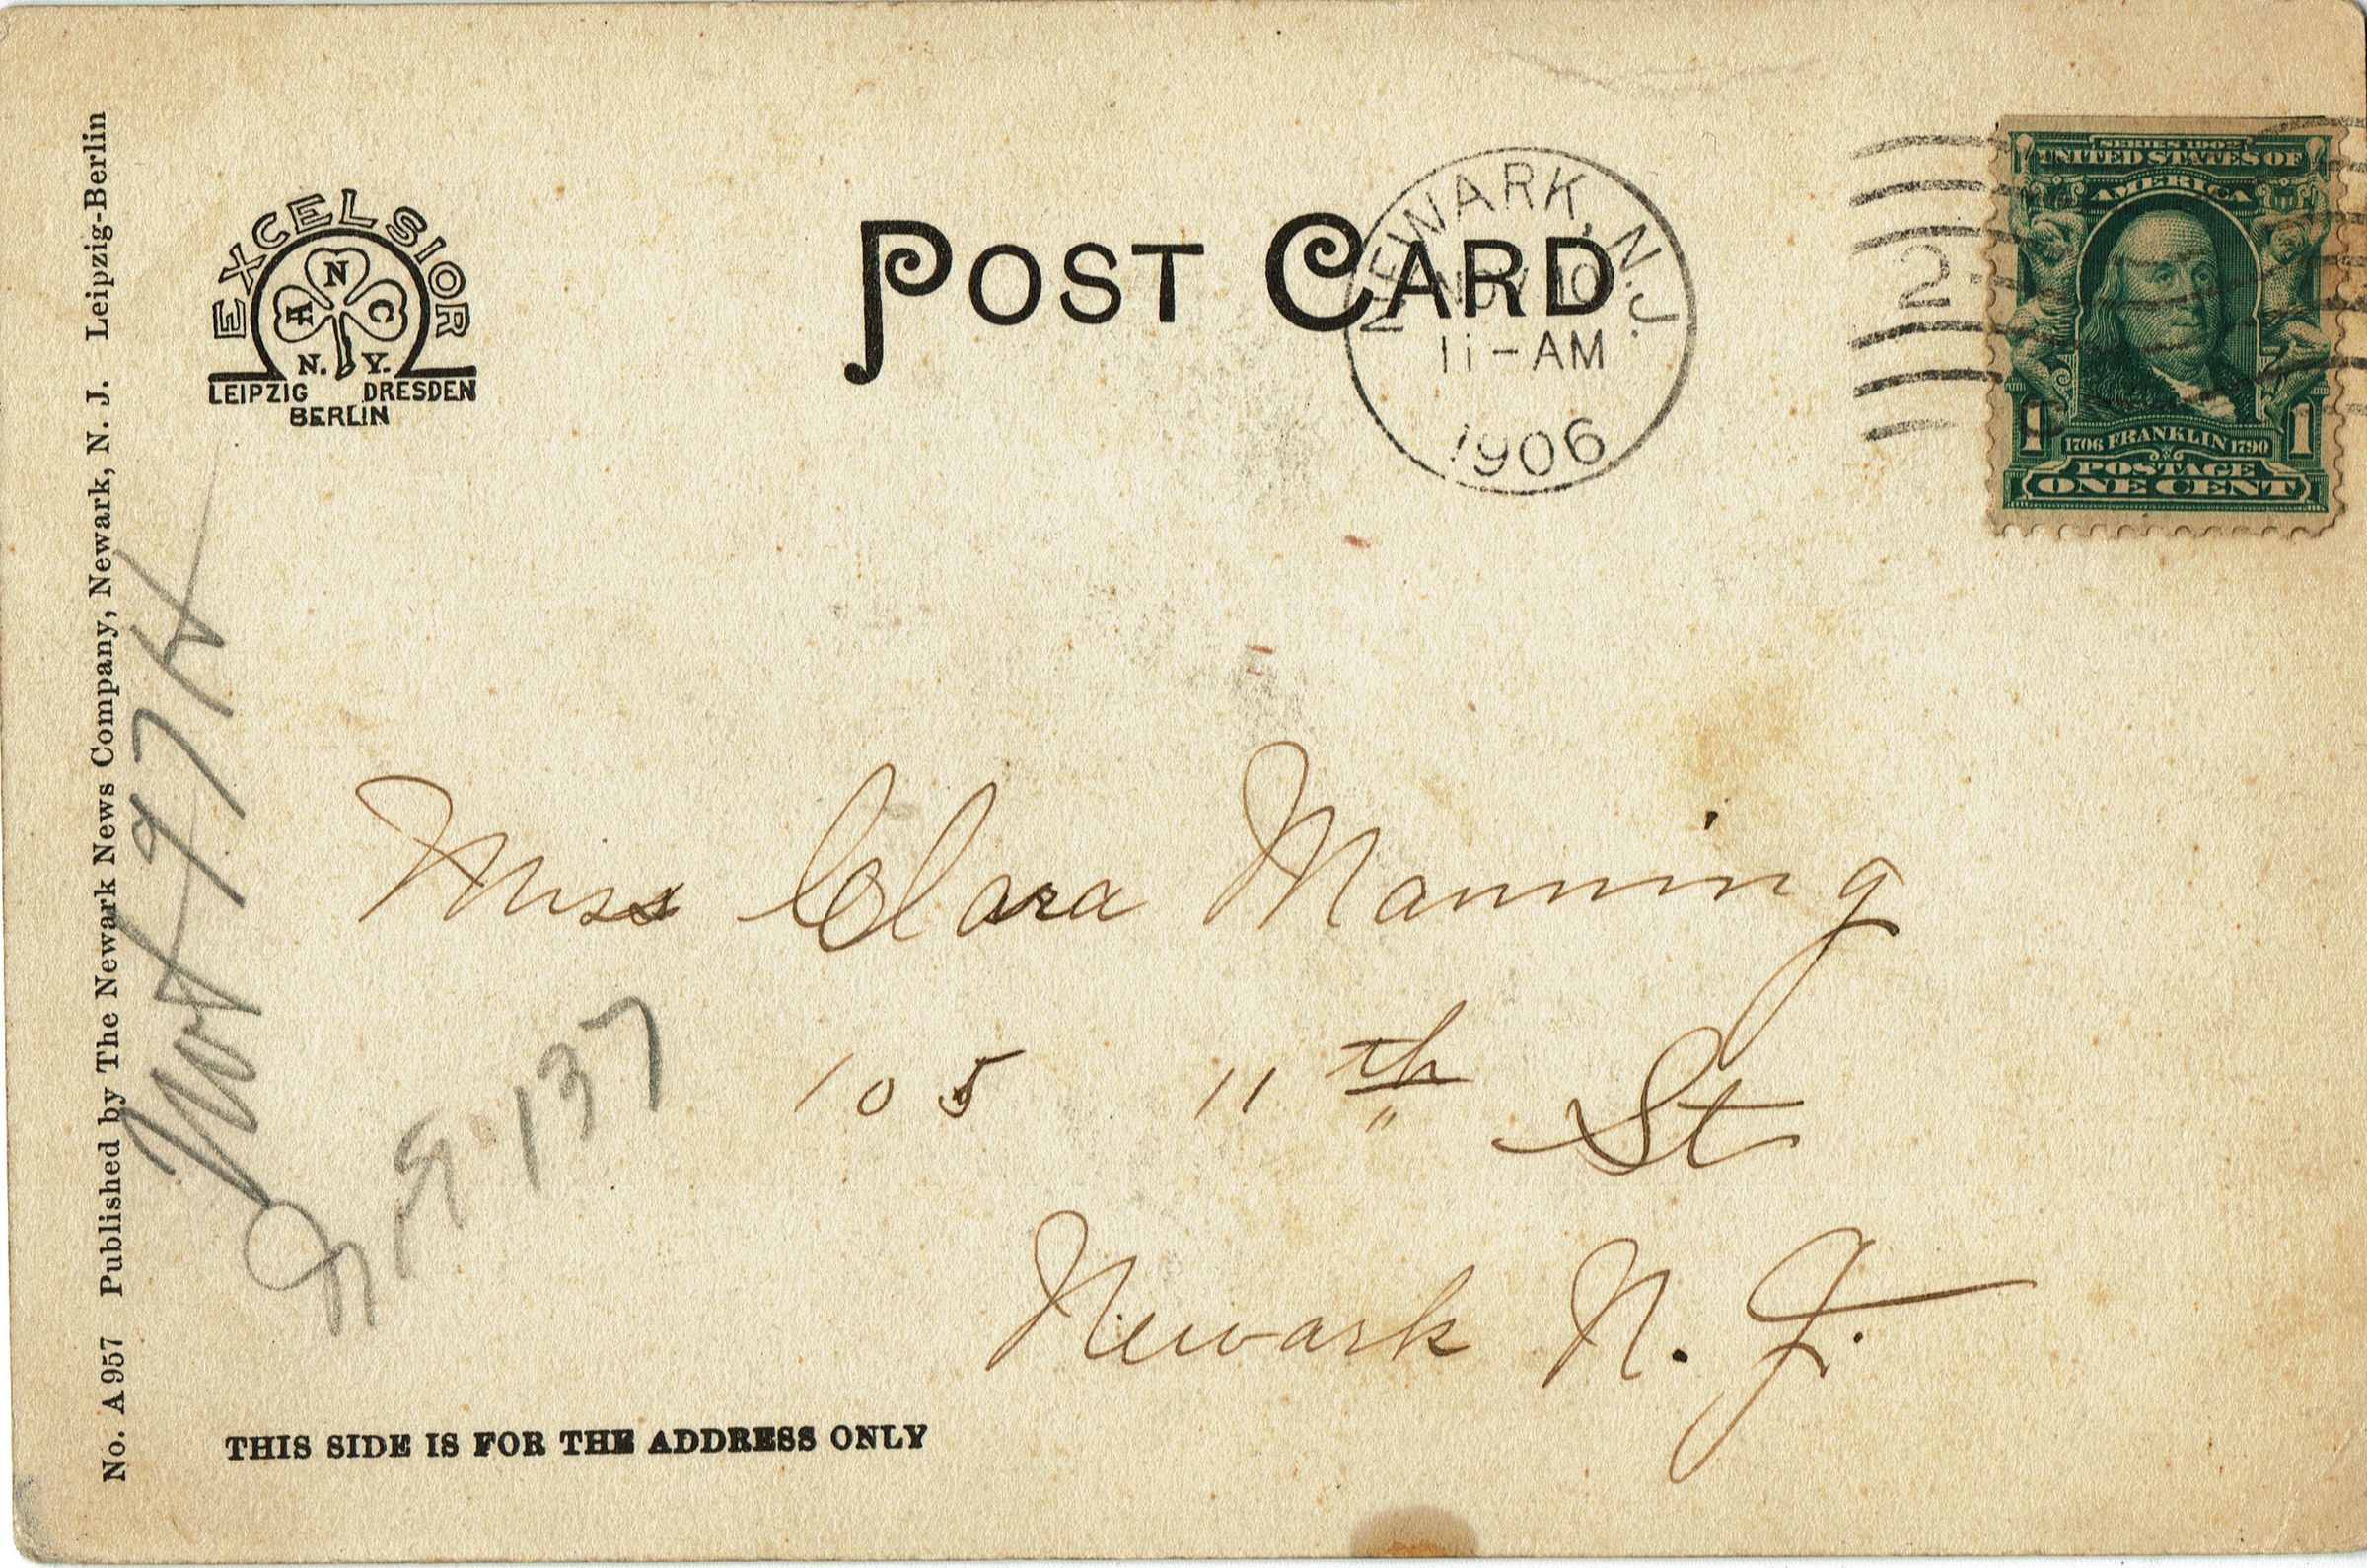 No. A 957 Published by The Newark News Company, Newark, N. J. Leipzig-Berlin
EXCELSIOR
A N C
N. Y.
LEIPZIG DRESDEN
BERLIN
POST CARD
NEWARK, N.J.
NOV 10
11-AM
1906
2
SERIES 1902
UNITED STATES OF
AMERICA
1 1
1706 FRANKLIN 1790
POSTAGE
ONE CENT
Miss Clara Manning
105 11th St
Newark N. J.
137
THIS SIDE IS FOR THE ADDRESS ONLY